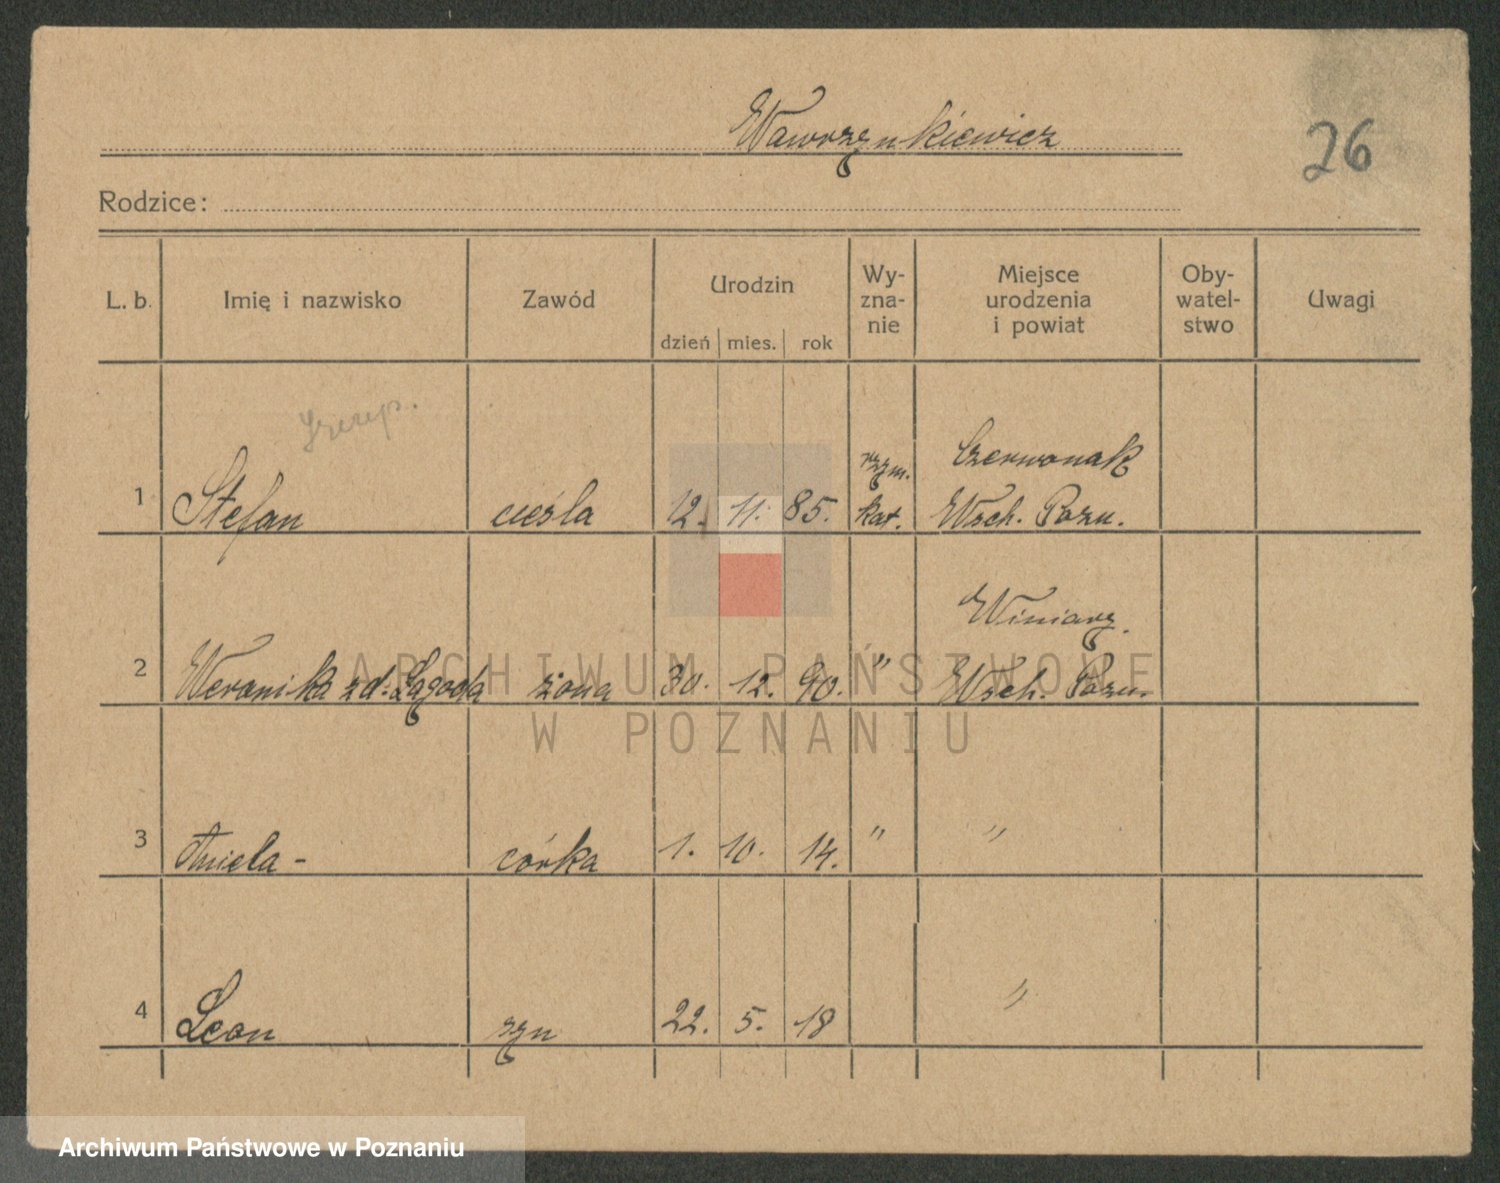 Wawrzynkiewicz
26
Rodzice:
L. b. Imię i nazwisko Zawód Urodzin dzień mies. rok Wy-zna-nie Miejsce urodzenia i powiat Oby-watel-stwo Uwagi
Czerwonak
rzym.
1 Stefan cieśla 12. 11. 85. kat. Wsch. Pozn.
Winiary.
2 Weronika zd: Łagoda żona 30. 12. 90. " Wsch. Pozn.
ARCHIWUM PAŃSTWOWE
W POZNANIU
3 Aniela - córka 1. 10. 14. " "
4 Leon syn 22. 5. 18 "
Archiwum Państwowe w Poznaniu